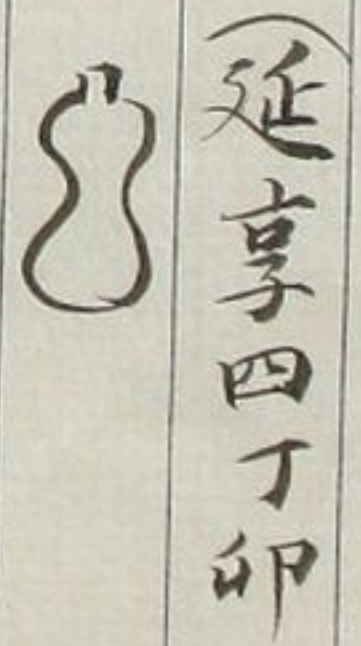 （延享四丁卯